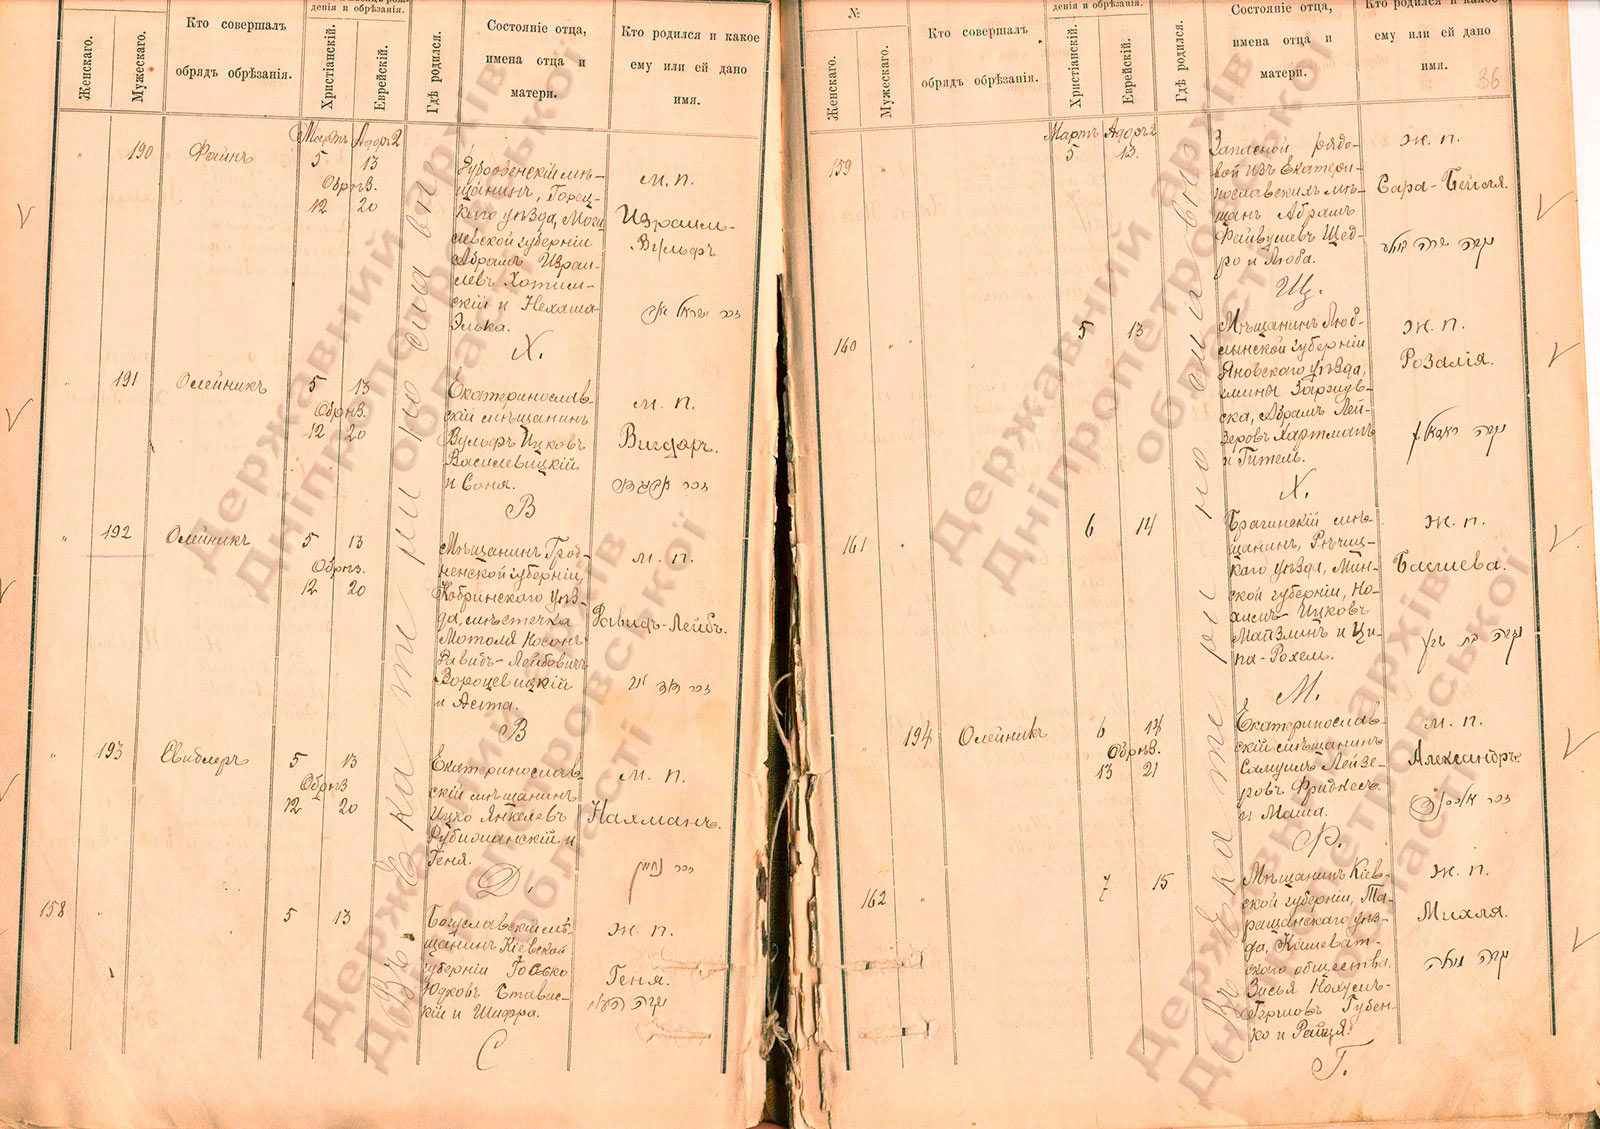 Женскаго.
Мужескаго.
Кто совершалъ
обрядъ обрѣзанія.
денія и обрѣзанія.
Христіанскій.
Еврейскій.
Гдѣ родился.
Состояніе отца,
имена отца и
матери.
Кто родился и какое
ему или ей дано
имя.
Мартъ Адоръ 2
" 190 Файнъ 5 13
Обрѣз.
12 20
Дубровенскій мѣ-
щанинъ, Горец-
каго уѣзда, Моги-
левской губерніи
Абрамъ Израи-
левъ Хотим-
скій и Нехама-
Элька.
Х.
м. п.
Израиль-
Вульфъ
" 191 Олейникъ 5 13
Обрѣз.
12 20
Екатеринослав-
скій мѣщанинъ
Вульфъ Ицковъ
Василевицкій
и Соня.
В
м. п.
Вигдоръ.
" 192 Олейникъ 5 13
Обрѣз.
12 20
Мѣщанинъ Грод-
ненской губерніи,
Кобринскаго уѣз-
да, мѣстечка
Мотоля Носонъ
Давидъ-Лейбовичъ
Вороцевицкій
и
В
м. п.
Давидъ-Лейбъ.
" 193 Свидлеръ 5 13
Обрѣз
12 20
Екатеринослав-
скій мѣщанинъ
Ицко Янкелевъ
и
Геня.
Д.
м. п.
Нахманъ.
זכר נחמן
158 " 5 13
Богуславскій мѣ-
щанинъ Кіевской
губерніи
Юдковъ Ставис-
скій и Шифра.
С
ж. п.
Геня.
Въ Екатеринославѣ
№
Женскаго.
Мужескаго.
Кто совершалъ
обрядъ обрѣзанія.
денія и обрѣзанія.
Христіанскій.
Еврейскій.
Гдѣ родился.
Состояніе отца,
имена отца и
матери.
Кто родился и какое
ему или ей дано
имя.
36
Мартъ Адоръ 2
159 " 5 13.
Запасной рядо-
вой изъ Екатери-
нославскихъ мѣ-
щанъ Абрамъ
Файвушевъ Щед-
ро и Люба.
Щ.
ж. п.
Сара-Бейля.
נקבה שרה ביילע
160 " 5 13
Мѣщанинъ Люб-
линской губерніи
Яновскаго уѣзда,
гмины
Абрамъ Лей-
зеровъ Хартманъ
и Гитель.
Х.
ж. п.
Розалія.
161 " 6 14
Брагинскій мѣ-
щанинъ, Рѣчиц-
каго уѣзда, Мин-
ской губерніи, Но-
химъ-Ицковъ
Майзлинъ и Ци-
па-Рохель.
М.
ж. п.
Басшева.
נקבה בת שבע
" 194 Олейникъ 6 14
Обрѣз.
13 21
Екатеринослав-
скій мѣщанинъ
Самуилъ Лейзе-
ровъ Фридкесъ
и Маша.
Ф.
м. п.
Александръ.
162 " 7 15
Мѣщанинъ Кіев-
ской губерніи, Та-
ращанскаго уѣз-
да, Кашеват-
скаго общества.
Зисья Нохумъ-
Гершовъ Губен-
ко и Райця.
Г.
ж. п.
Михля.
Въ Екатеринославѣ
Державний архів
Дніпропетровської
області